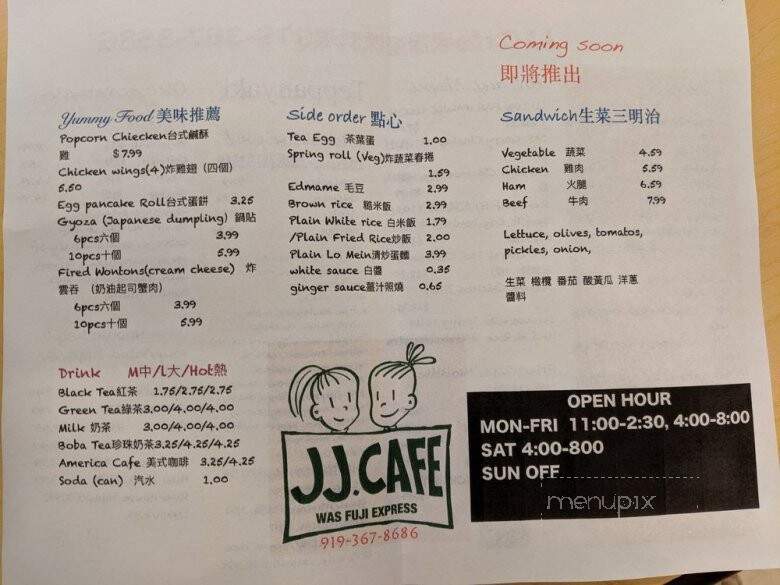 Coming soon
即將推出
Yummy Food 美味推薦
Popcorn Chiecken台式鹹酥
雞 $7.99
Chicken wings(4)炸雞翅 (四個)
5.50
Egg pancake Roll台式蛋餅 3.25
Gyoza (Japanese dumpling) 鍋貼
6pcs六個 3.99
10pcs十個 5.99
Fired Wontons(cream cheese) 炸
雲吞 (奶油起司蟹肉)
6pcs六個 3.99
10pcs十個 5.99
Side order 點心
Tea Egg 茶葉蛋 1.00
Spring roll (Veg)炸蔬菜春捲
1.59
Edmame 毛豆 2.99
Brown rice 糙米飯 2.99
Plain White rice 白米飯 1.79
/Plain Fried Rice炒飯 2.00
Plain Lo Mein清炒蛋麵 3.99
white sauce 白醬 0.35
ginger sauce薑汁照燒 0.65
Sandwich生菜三明治
Vegetable 蔬菜 4.59
Chicken 雞肉 5.59
Ham 火腿 6.59
Beef 牛肉 7.99
Lettuce, olives, tomatos,
pickles, onion,
生菜 橄欖 番茄 酸黃瓜 洋蔥
醬料
Drink M中/L大/Hot熱
Black Tea紅茶 1.75/2.75/2.75
Green Tea綠茶3.00/4.00/4.00
Milk 奶茶 3.00/4.00/4.00
Boba Tea珍珠奶茶3.25/4.25/4.25
America Cafe 美式咖啡 3.25/4.25
Soda (can) 汽水 1.00
JJ.CAFE
WAS FUJI EXPRESS
919-367-8686
OPEN HOUR
MON-FRI 11:00-2:30, 4:00-8:00
SAT 4:00-800
SUN OFF
menupix